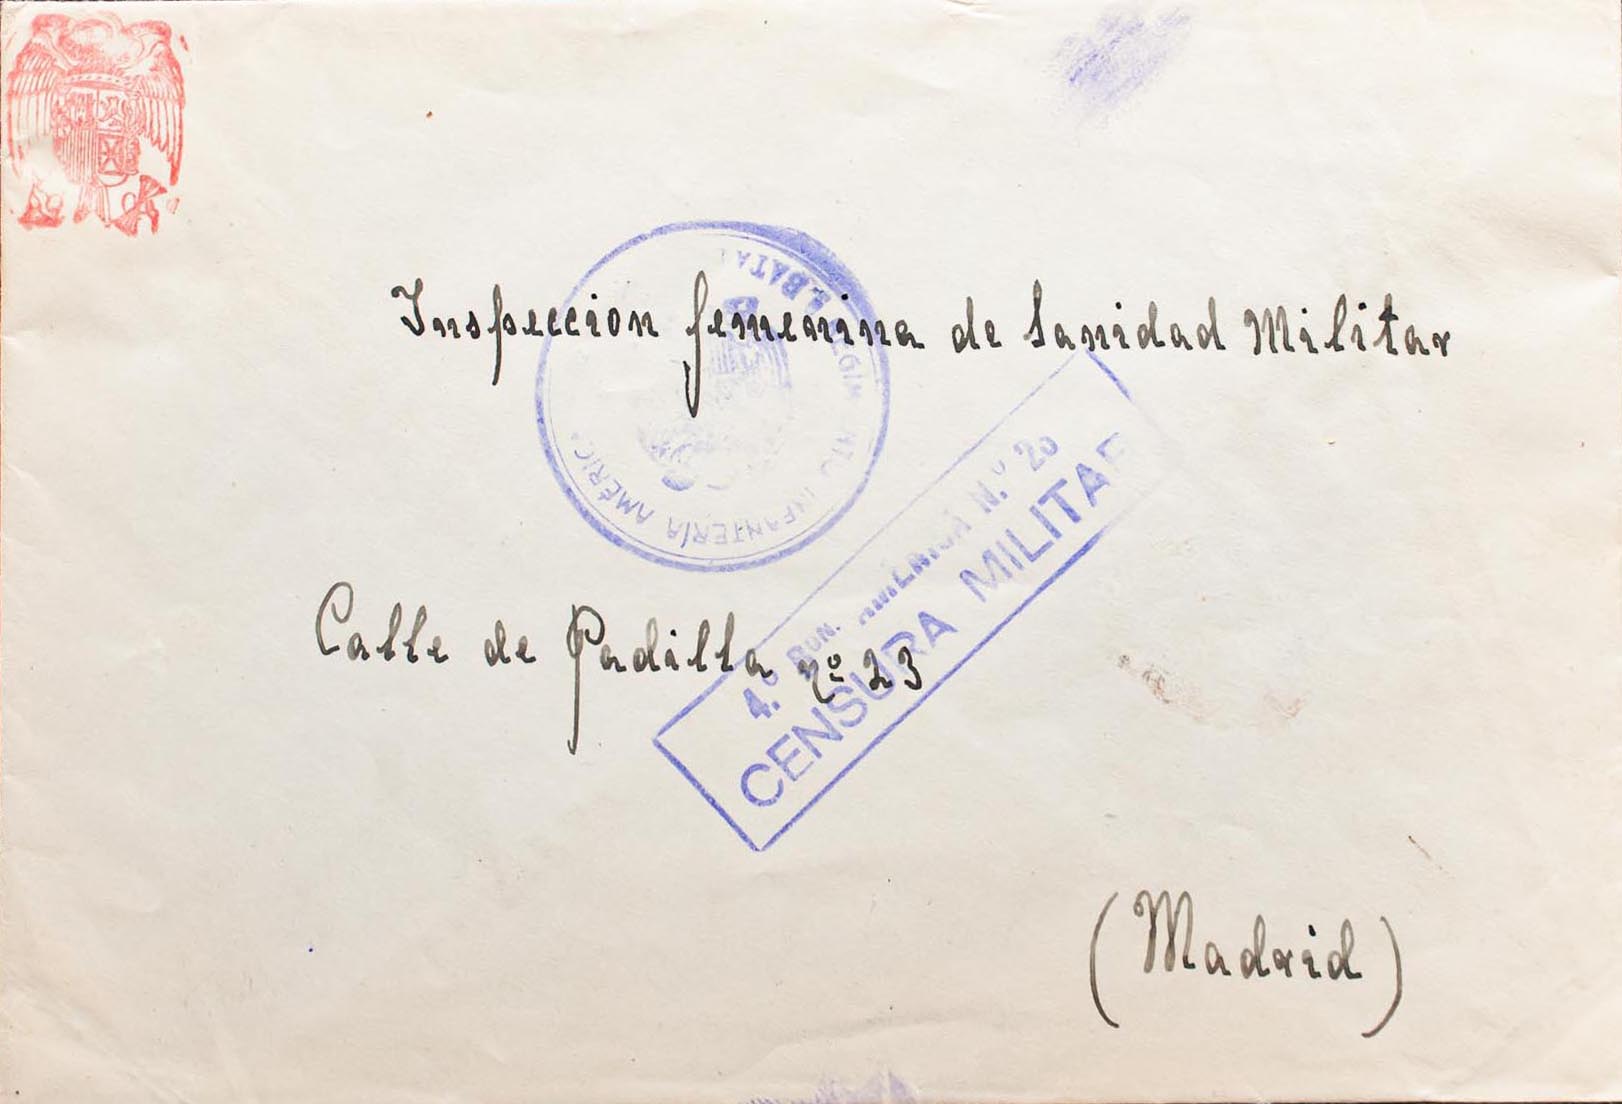 Inspeccion femenina de Sanidad Militar
INFANTERÍA AMÉRIC
4.º BON. AMÉRICA N.º 23
CENSURA MILITAR
Calle de Padilla nº 23
(Madrid)